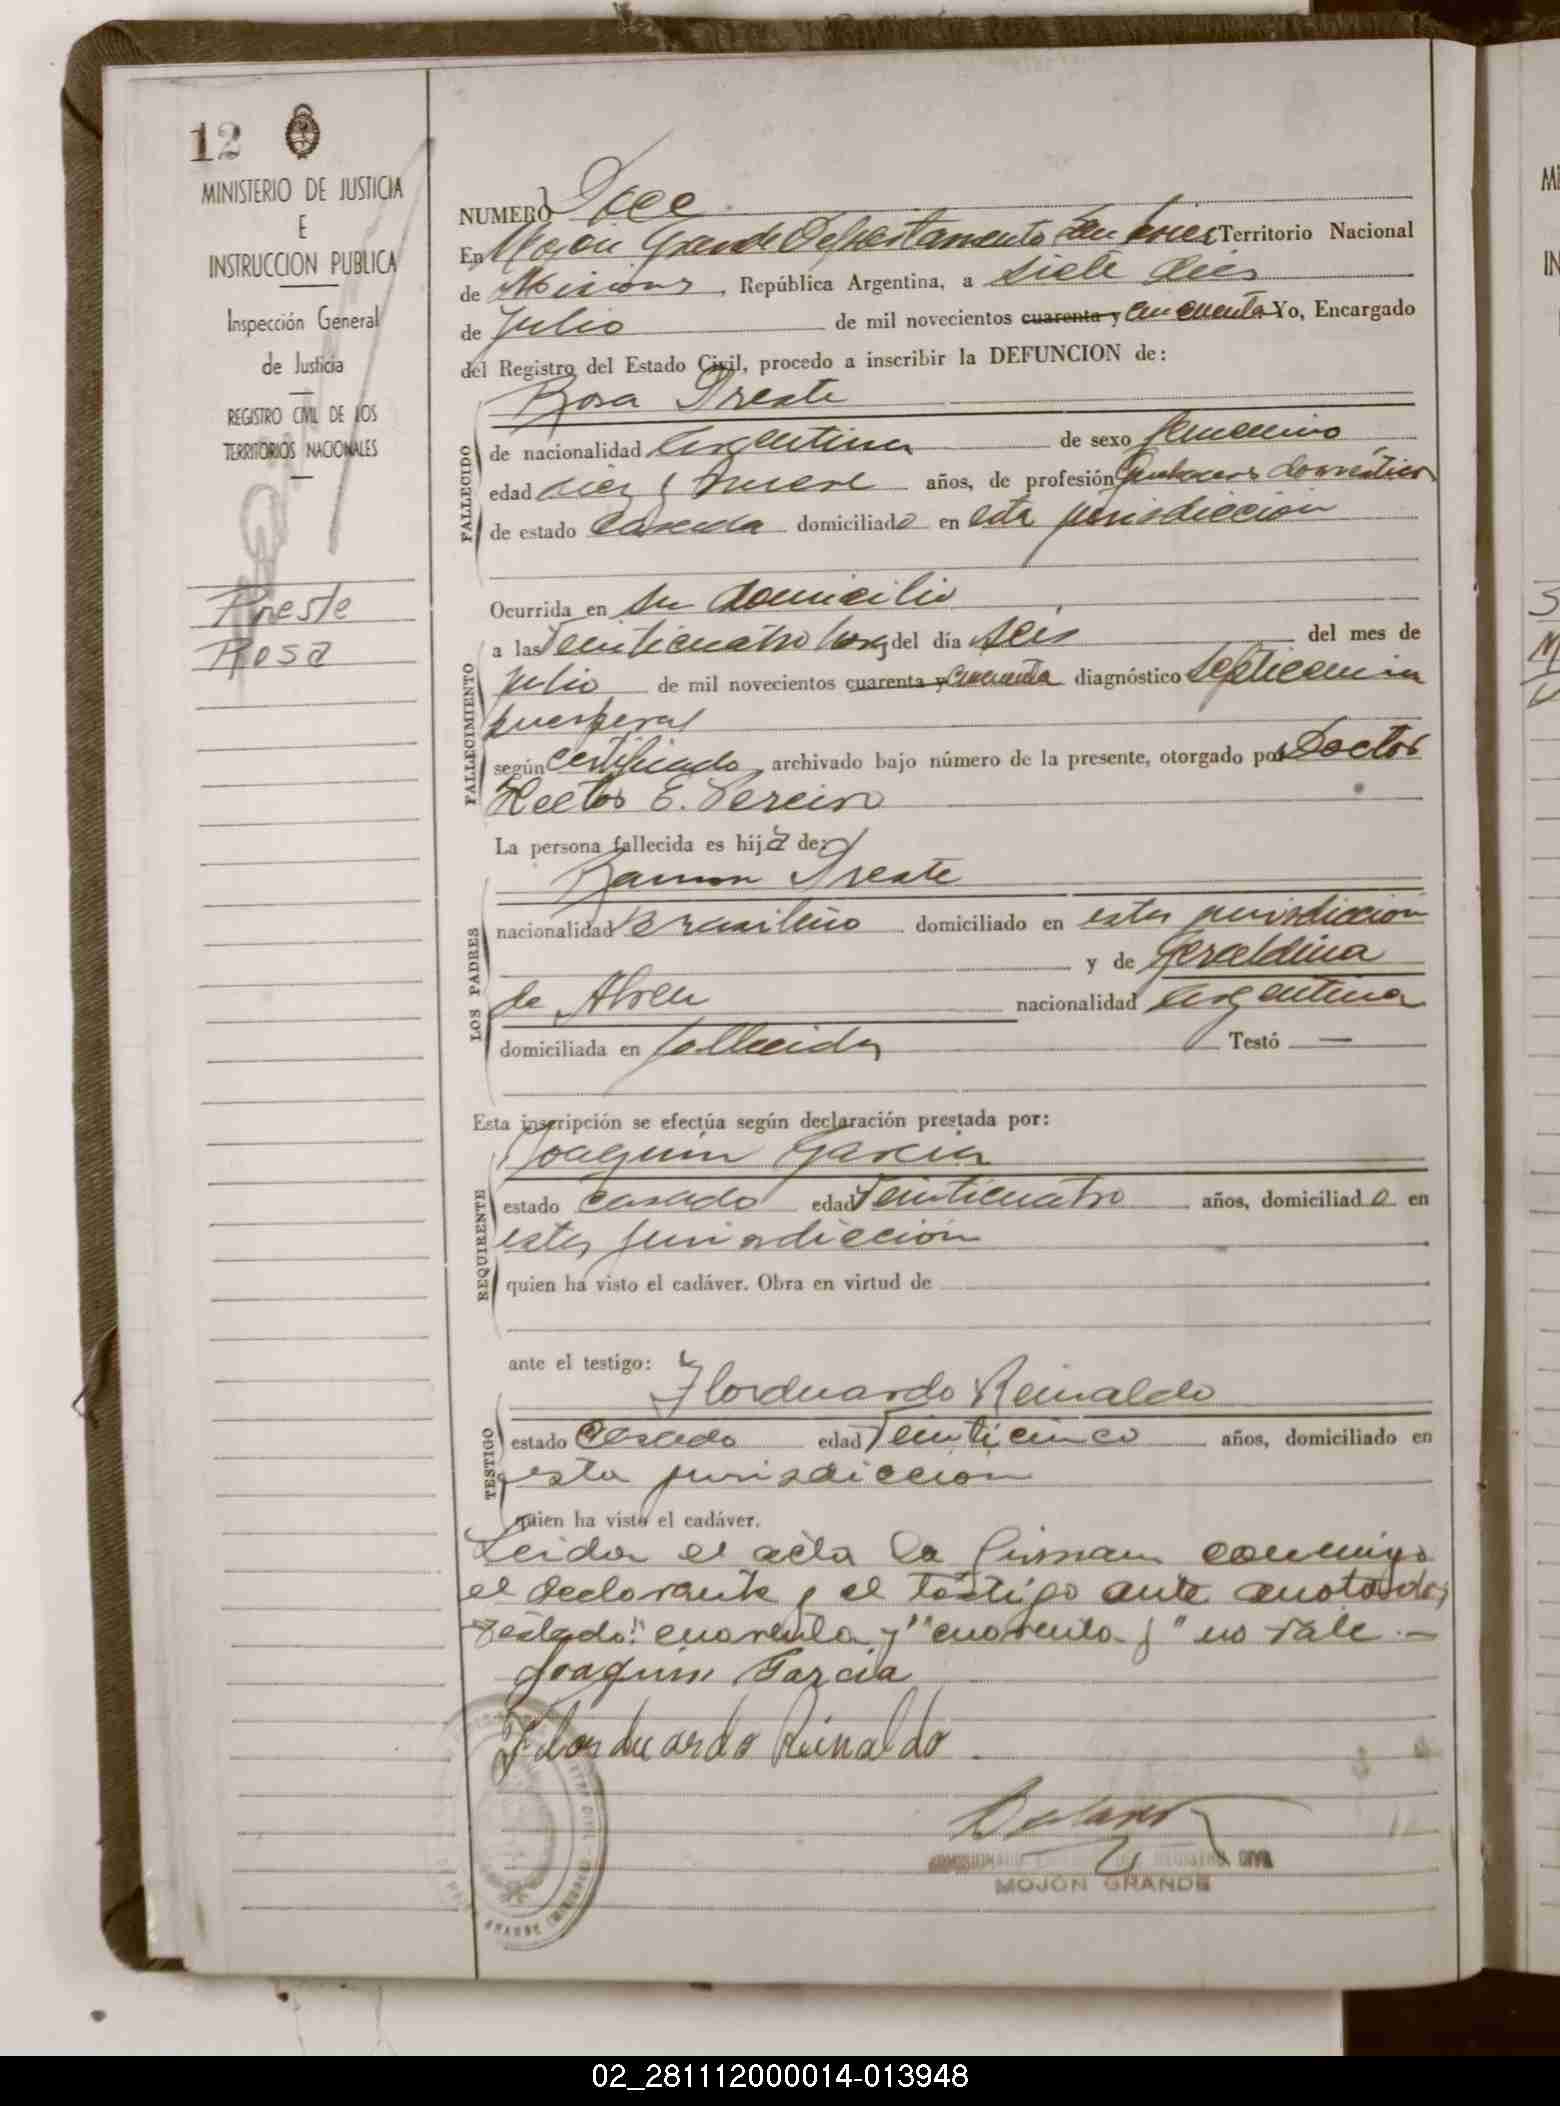 12
MINISTERIO DE JUSTICIA
E
INSTRUCCION PUBLICA
Inspección General
de Justicia
REGISTRO CIVIL DE LOS
TERRITORIOS NACIONALES
Preste
Rosa
NUMERO Doce
En Mojón Grande Departamento San Javier Territorio Nacional
de Misiones, República Argentina, a siete días
de Julio de mil novecientos cuarenta y cincuenta Yo, Encargado
del Registro del Estado Civil, procedo a inscribir la DEFUNCION de:
Rosa Preste
FALLECIDO
de nacionalidad argentina de sexo femenino
edad diez y nueve años, de profesión quehaceres domésticos
de estado casada domiciliada en esta jurisdicción
Ocurrida en su domicilio
FALLECIMIENTO
a las veinticuatro horas del día seis del mes de
julio de mil novecientos cuarenta y cincuenta diagnóstico septicemia
puerperal
según certificado archivado bajo número de la presente, otorgado por Doctor
Hector E.
La persona fallecida es hija de:
Ramon Preste
LOS PADRES
nacionalidad brasileño domiciliado en esta jurisdicción
y de Geraldina
de Abreu nacionalidad argentina
domiciliada en fallecida Testó —
Esta inscripción se efectúa según declaración prestada por:
Joaquin Garcia
REQUIRENTE
estado casado edad veinticuatro años, domiciliado en
esta jurisdicción
quien ha visto el cadáver. Obra en virtud de
ante el testigo:
Florduardo Reinaldo
TESTIGO
estado casado edad veinticinco años, domiciliado en
esta jurisdicción
quien ha visto el cadáver.
Leida el acta la firman conmigo
el declarante y el testigo ante anotados
Testado: "cuarenta y" "cuarenta y" no vale.—
Joaquin Garcia
Florduardo Reinaldo
REGISTRO CIVIL
MOJÓN GRANDE
02_281112000014-013948